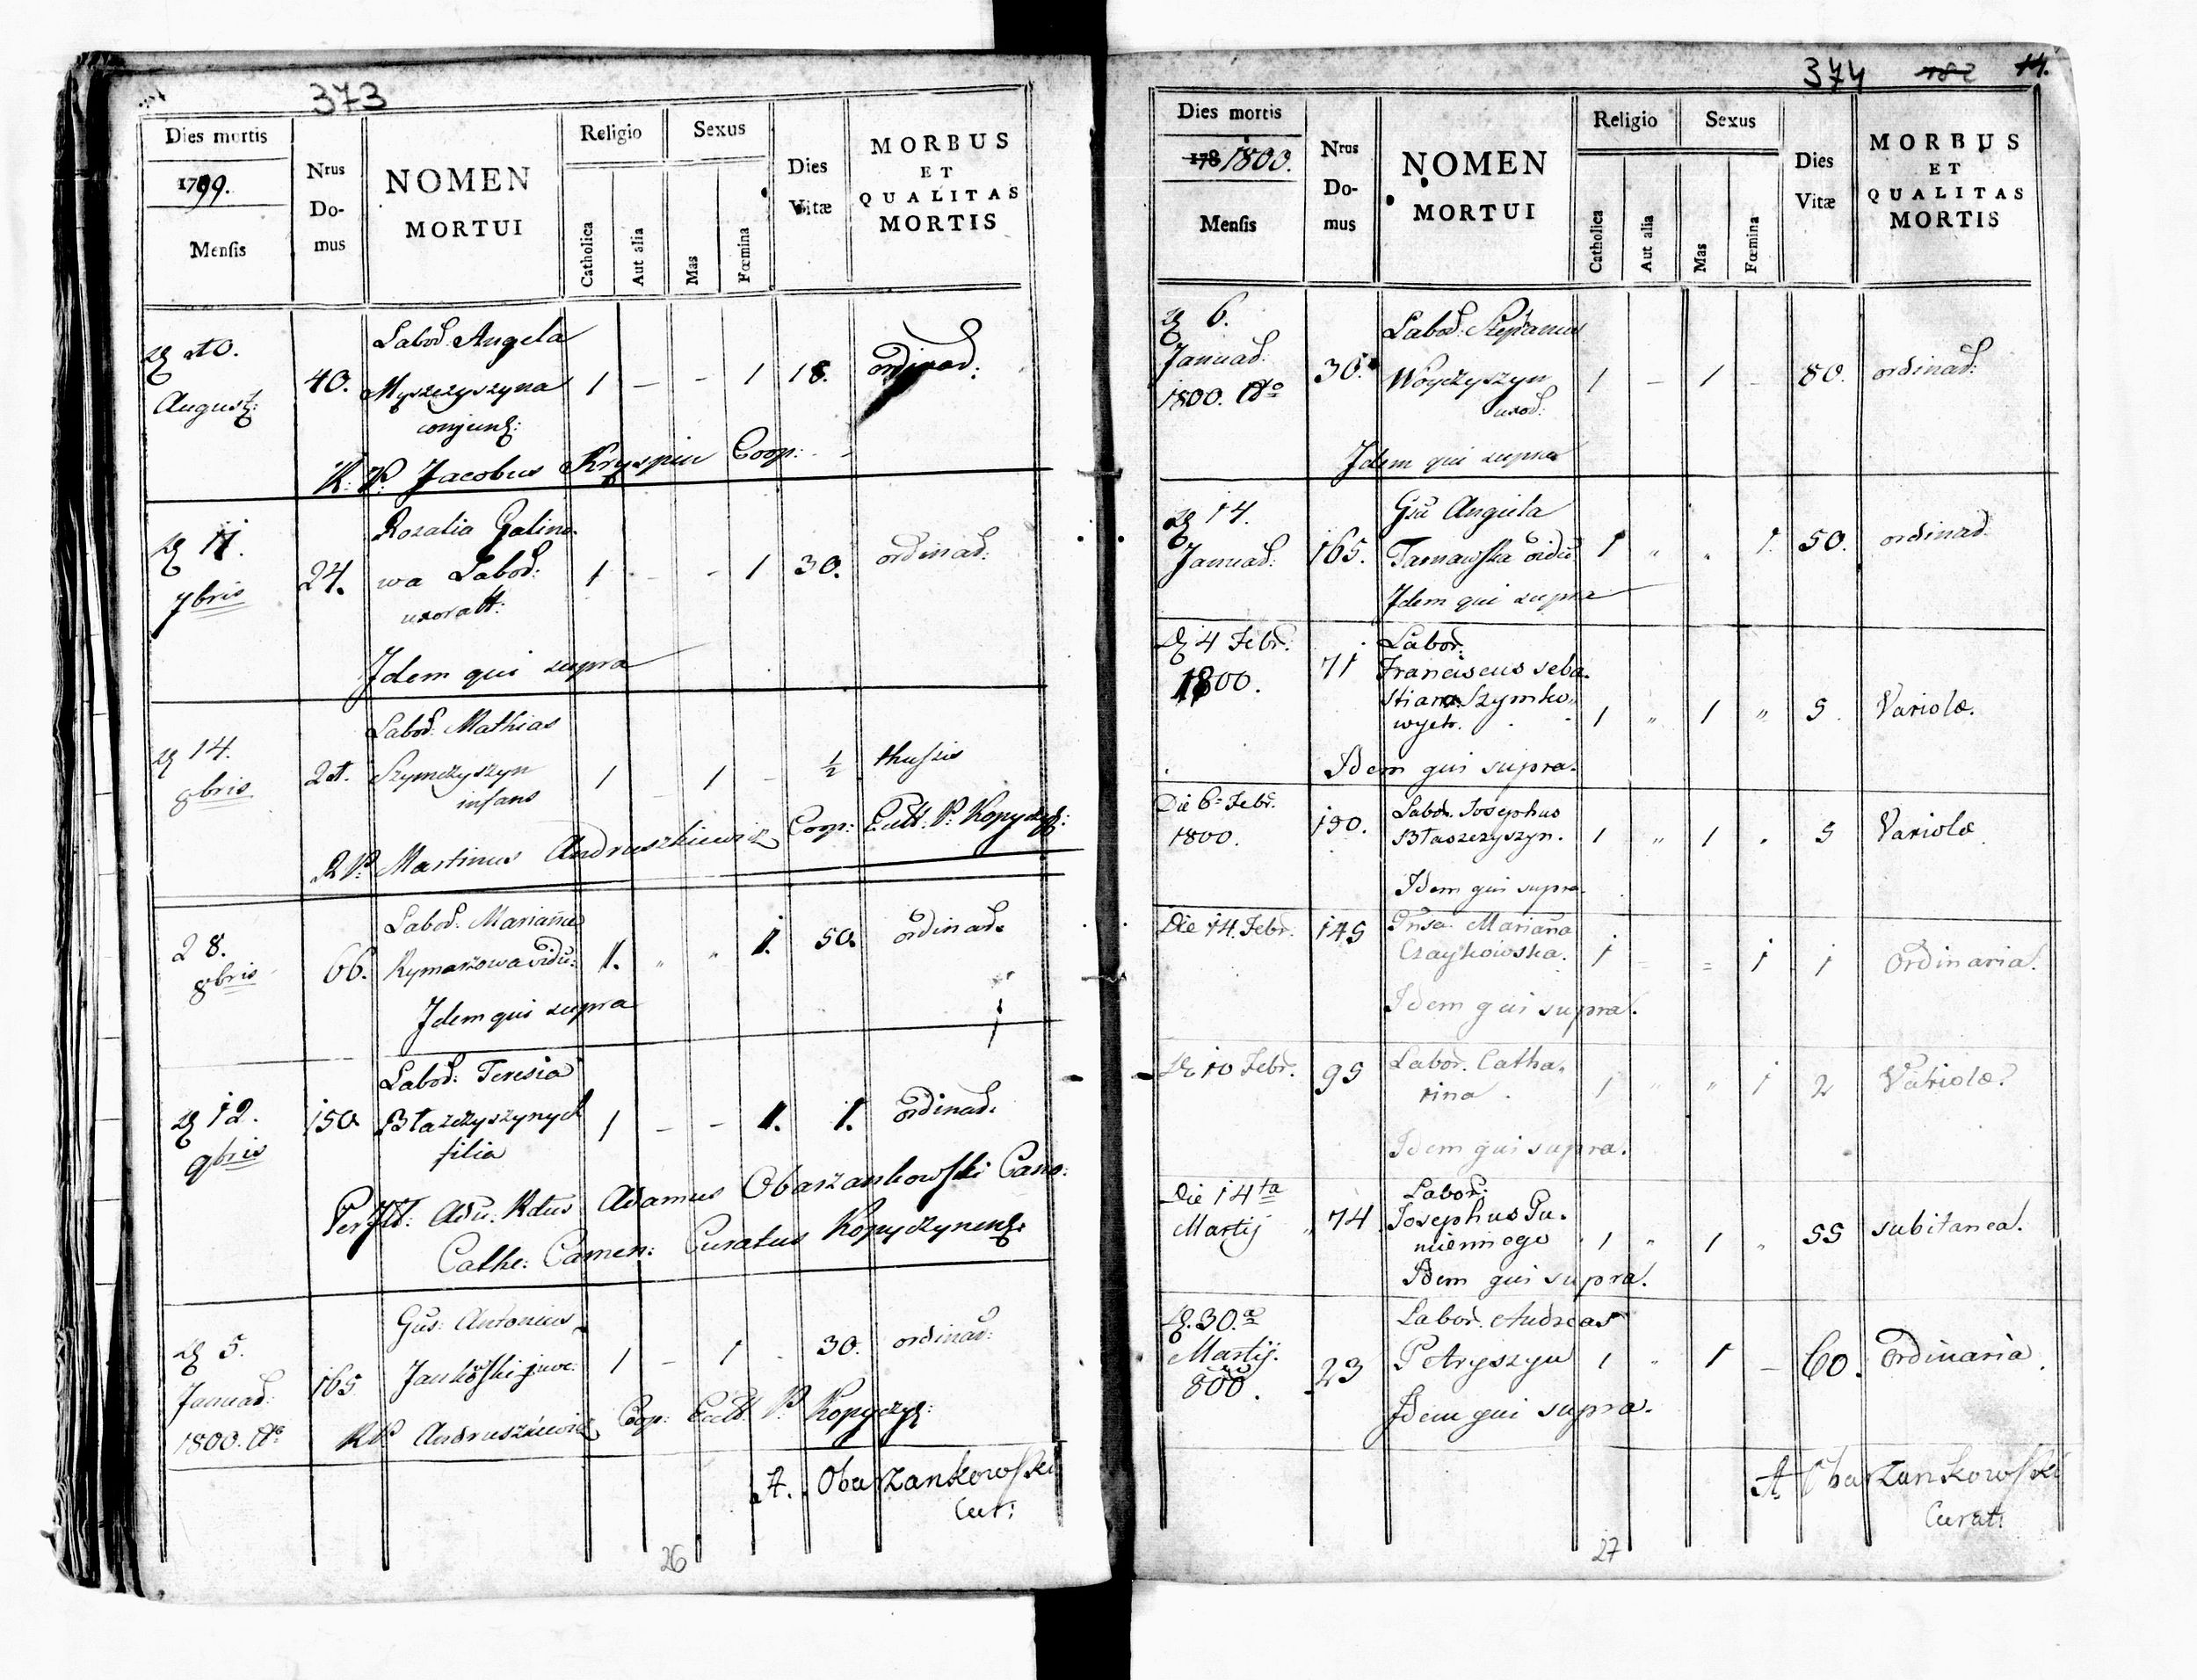 373
Dies mortis
1799.
Mensis
Nrus
Do-
mus
NOMEN
MORTUI
Religio
Catholica
Aut alia
Sexus
Mas
Fœmina
Dies
Vitæ
MORBUS
ET
QUALITAS
MORTIS
August:
40.
Labor: Angela
Myszczyszyna
conjunx:
1 – - 1 18. ordinar:
R: P: Jacobus Kryspin Coop:
11.
7bris
24.
Rozalia Galino-
wa Labor:
uxorat:
1 - - 1 30. ordinar:
Idem qui supra
14.
8bris
Labor: Mathias
Szymczyszyn
infans
1 1 - ½
R P: Martinus Andruszkiewicz Coop: Eccl: P: Kopyczyn:
28.
8bris
66.
Labor: Marianna
Rymarzowa vidu:
1. " " 1. 50. ordinar.
Idem qui supra
12.
9bris
150
Labor: Teresia
Błazczyszynych
filia
1 – - 1. 1. ordinar:
Adamus Obarzankowski Cano:
Cathe: Camen: Curatus Kopyczynens:
5.
Januar:
1800. Ao
165
Gus: Antonius
Jankowski juve:
1 – 1 . 30. ordinar:
RP Andruszkiewicz Coop: Eccl: P: Kopyczyn:
A. Obarzankowski
Cur:
26
374 182 14.
Dies mortis
178 1800.
Mensis
Nrus
Do-
mus
NOMEN
MORTUI
Religio
Catholica
Aut alia
Sexus
Mas
Fœmina
Dies
Vitæ
MORBUS
ET
QUALITAS
MORTIS
6.
Januar:
1800. Ao
30.
Labor: Stephanus
Woyczyszyn
uxor:
1 – 1 – 80. ordinar:
Idem qui supra
14.
Januar:
165.
Angela
Tarnawska vidu:
1 " . 1. 50. ordinar:
Idem qui supra
4 Febr:
1800.
71
Labor:
Franciscus Seba-
stian Szymko-
wych.
1 " 1 " 5. Variolæ.
Idem qui supra.
Die 6a Febr.
1800.
150.
Labor. Josephus
Błaszczyszyn.
1 " 1 . 5 Variolæ
Idem qui supra.
Die 14. Febr.
145
Mariana
Czaykowska.
1 = = 1 1 Ordinaria.
Idem qui supra.
10 Febr.
95
Labor. Catha-
rina.
1 " " 1 2 Variolæ
Idem qui supra.
Die 14ta
Martij
74
Labor:
Josephus Gu-
miennego
1 " 1 " 55 subitanea.
Idem qui supra.
30.a
Martij.
800.
23
Labor. Andreas
Petryszyn
1 " 1 – 60. Ordinaria.
Idem qui supra.
A Obarzankowski
Curat:
27